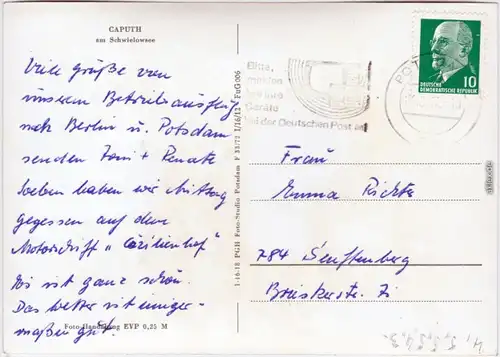 CAPUTH
am Schwielowsee
Viele Grüße von
unserem Betriebsausflug
nach Berlin u. Potsdam
senden Toni + Renate
Soeben haben wir Mittag
gegessen auf dem
Motorschiff "Cäcilienhof"
Es ist ganz schön.
Das Wetter ist einiger-
maßen gut.
Foto-Handlung EVP 0,25 M
1-16-18 PGH Foto-Studio Potsdam F 33/71 I/16/12 FuG 006
Bitte,
Geräte
bei der Deutschen Post an
POT
10
DEUTSCHE
DEMOKRATISCHE REPUBLIK
Frau
Emma Richter
784 Senftenberg
Briesker Str. 71